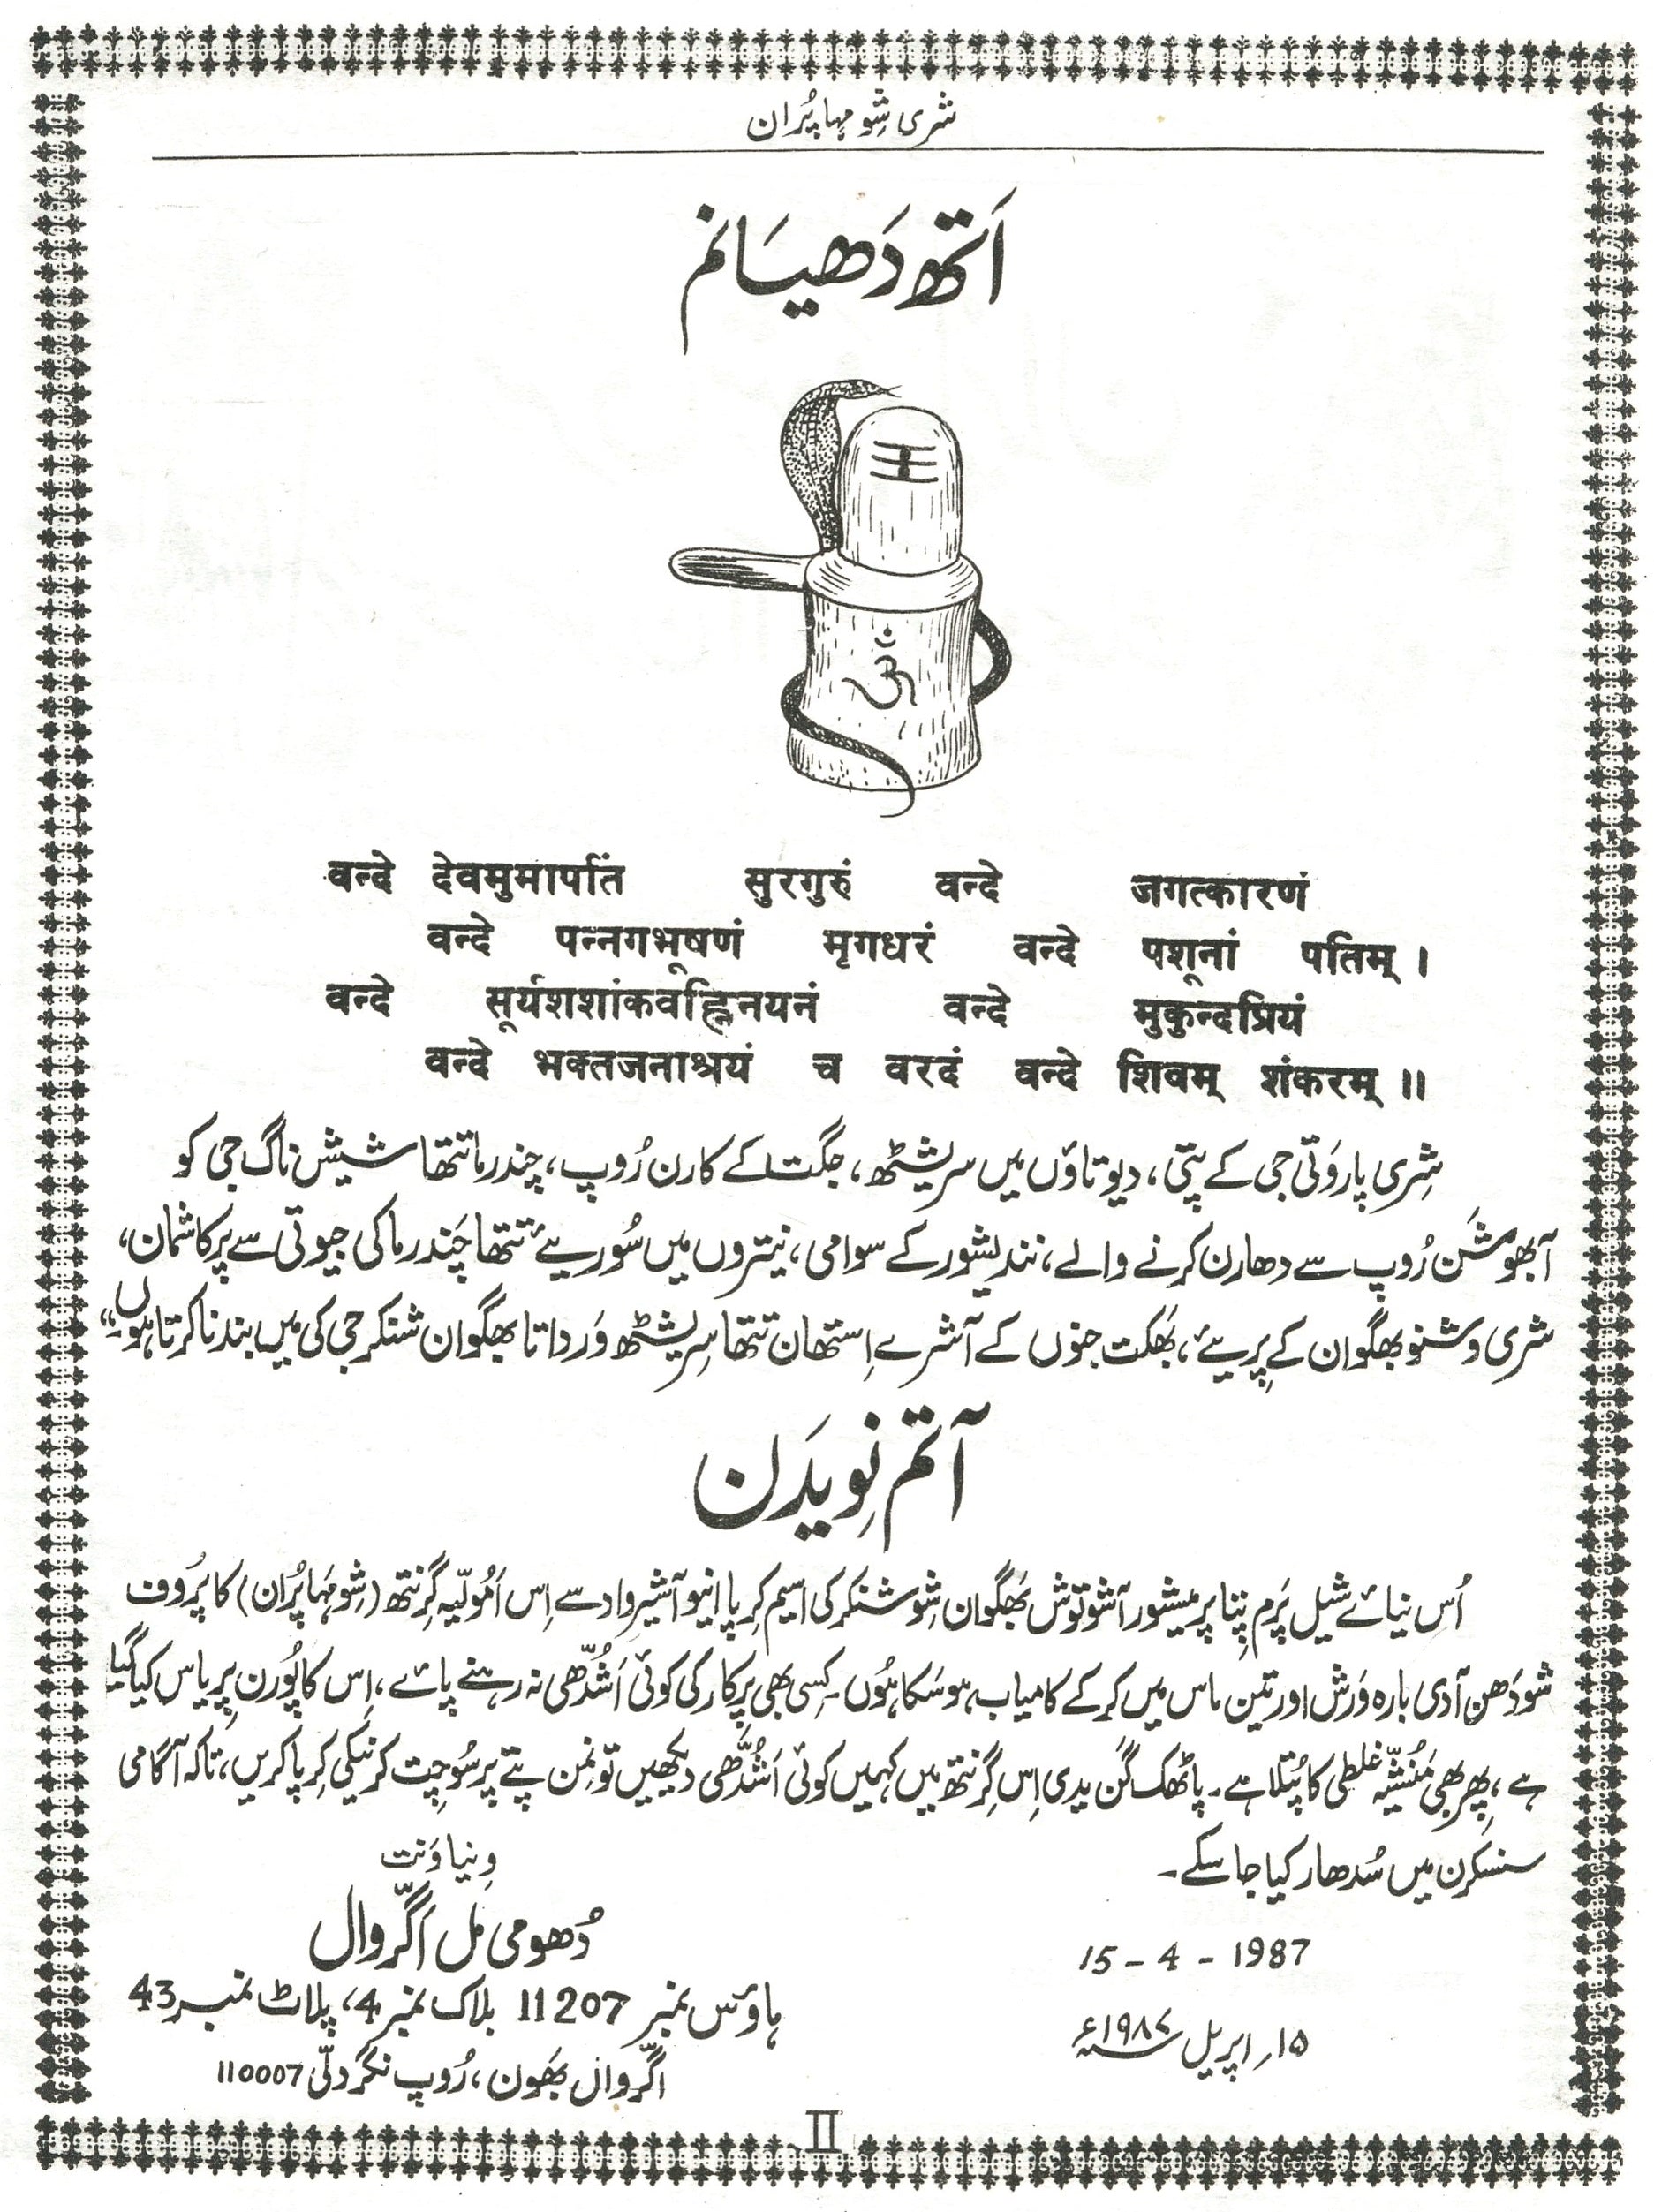 شری شِو مہاپُران
اَتھ دَھیَانم
ॐ
वन्दे देवमुमापतिं सुरगुरुं वन्दे जगत्कारणं
वन्दे पन्नगभूषणं मृगधरं वन्दे पशूनां पतिम् ।
वन्दे सूर्यशशांकवह्निनयनं वन्दे मुकुन्दप्रियं
वन्दे भक्तजनाश्रयं च वरदं वन्दे शिवम् शंकरम् ॥
شِری پاروَتی جی کے پتی، دیوتاؤں میں سریشٹھ، جگت کے کارن رُوپ، چندرما تتھا شیش ناگ جی کو
آبھوشَن رُوپ سے دھارن کرنے والے، نندیشور کے سوامی، نیتروں میں سُوریئے تتھا چَندرما کی جیوتی سے پرکاشمان،
شری وشنو بھگوان کے پرِیئے، بھَکت جنوں کے آشرے اِستھان تتھا سرِیشٹھ وَرداتا بھگوان شنکر جی کی میں بندنا کرتا ہوں“
آتم نِویدَن
اُس نیائے شیل پَرم پِتا پرمیشور آشوتوش بھَگوان شِوشنکر کی اسیم کرِپا اینو آشیرواد سے اِس اَمُولیّہ گرنتھ (شِو مہَاپُران) کا پرُوف
شودَھن آدی بارہ وَرش اور تین ماس میں کر کے کامیاب ہو سَکا ہُوں۔ کِسی بھی پرکار کی کوئی اَشُدّھی نہ رہنے پائے، اِس کا پُورن پرِیاس کیا گیا
ہے، پھِر بھی مَنُشیّہ غلطی کا پُتلا ہے۔ پاٹھک گَن یدی اِس گرنتھ میں کہیں کوئی اَشُدّھی دیکھیں تو نِمن پتے پر سُوچِت کرنیکی کرِپا کریں، تاکہ آگامی
سنسکرن میں سُدھار کیا جا سکے۔
وِنیاوَنت
دُھومی مل اگّروال
15 - 4 - 1987
ہاؤس نمبر 11207 بلاک نمبر 4، پلاٹ نمبر 43
۱۵؍ اپریل ۱۹۸۷ء
اگّروال بھَون، رُوپ نگر دلّی 110007
II